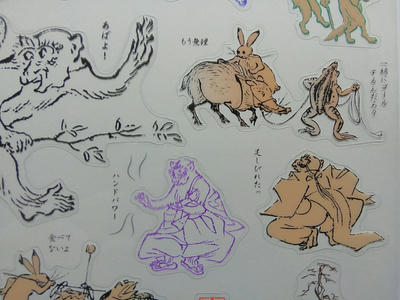 あばよー
もう無理
一緒にゴールするんだろ?
足しびれたっ
ハンドパワー
食べて
ないよ